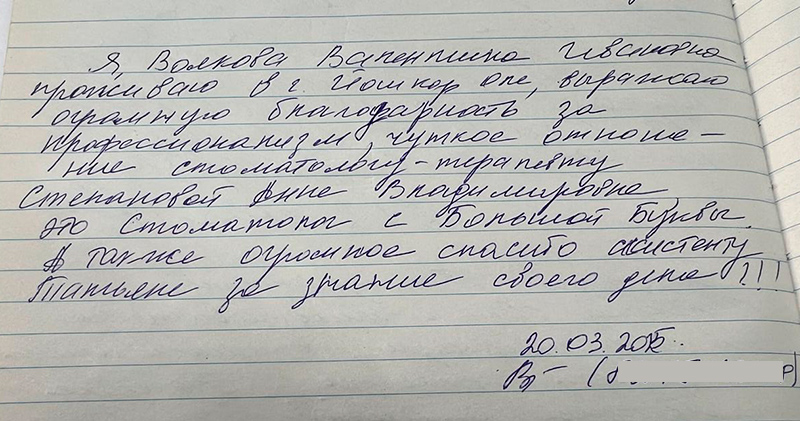 Я, Волкова Валентина Ивановна
проживаю в г. Йошкар Оле, выражаю
огромную благодарность за
профессионализм, чуткое отноше-
ние стоматологу-терапевту
Степановой Анне Владимировне
это Стоматолог с Большой Буквы.
А также огромное спасибо ассистенту
Татьяне за знание своего дела!!!
20.03.2025.